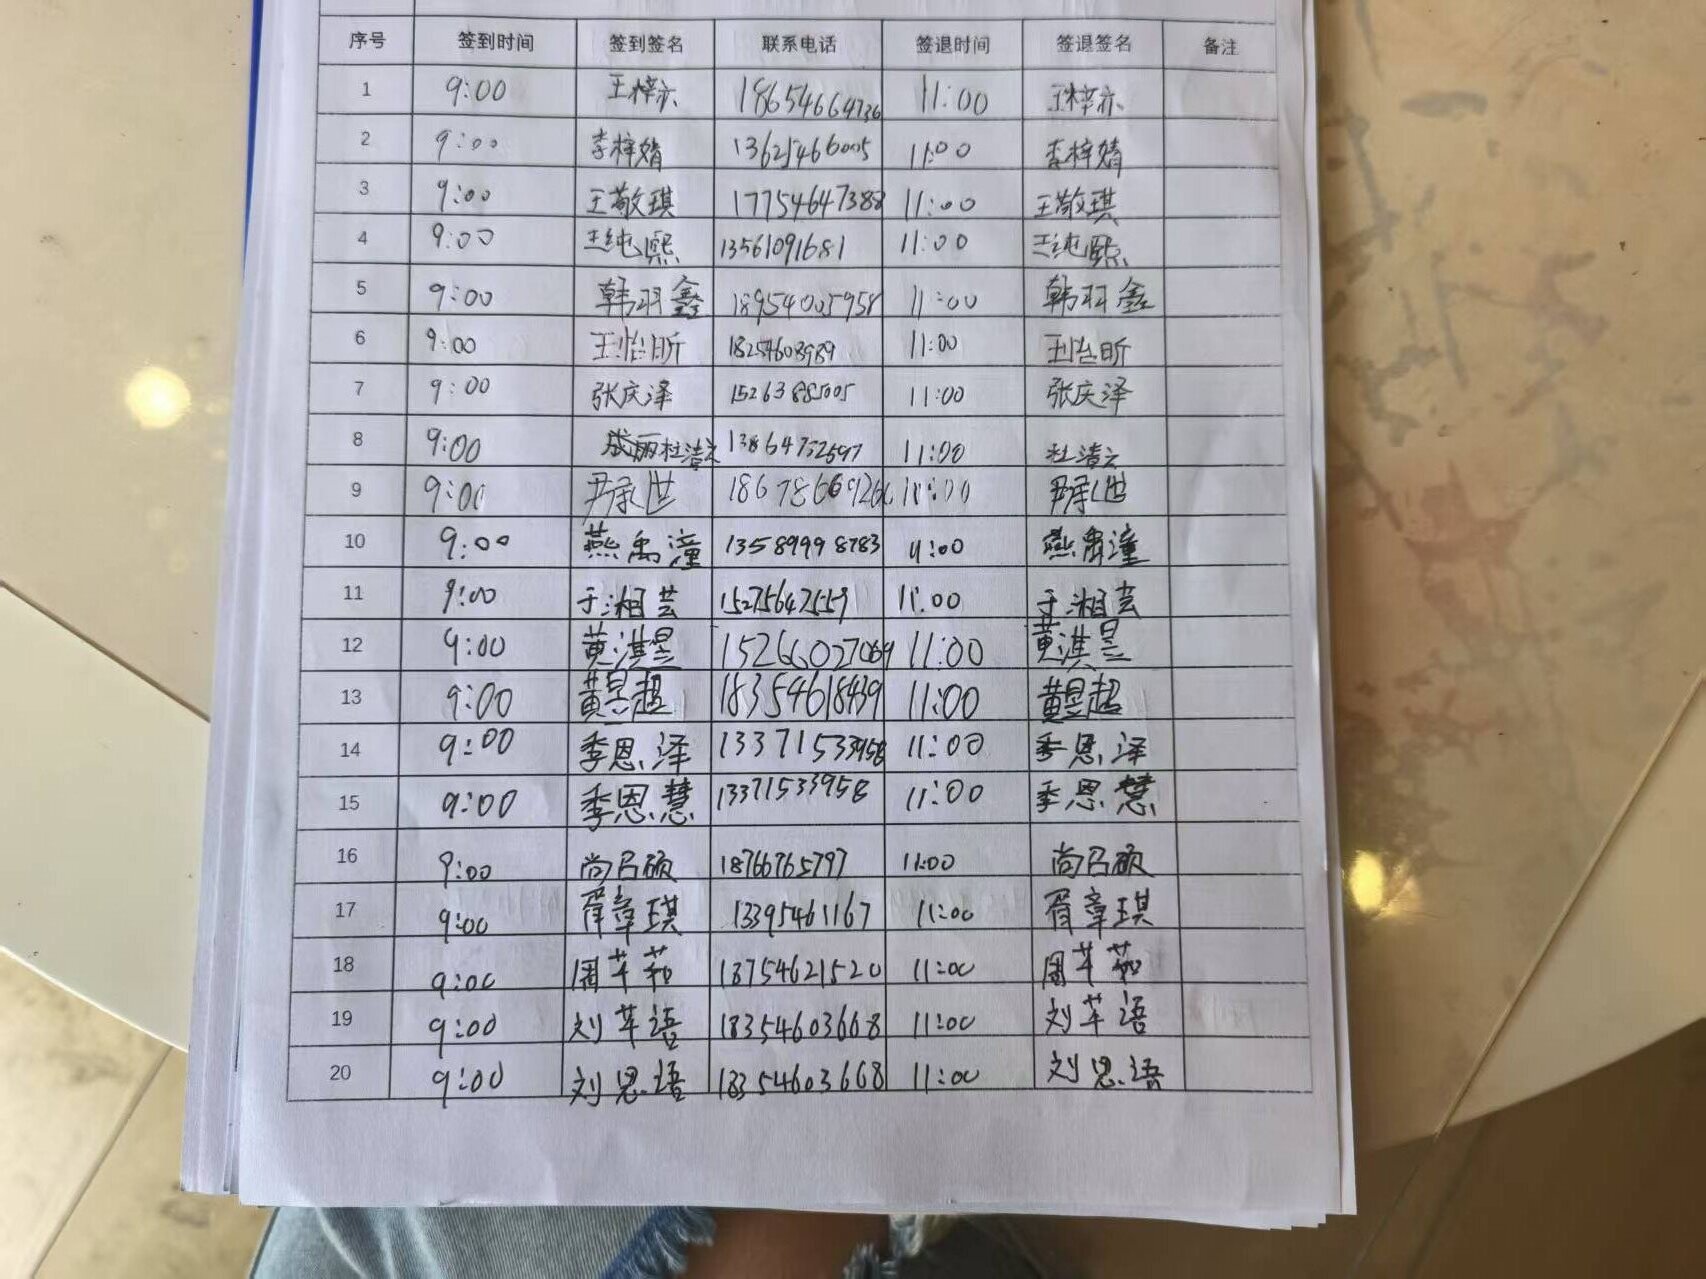 序号 签到时间 签到签名 联系电话 签退时间 签退签名 备注
1 9:00 王梓亦 18654664736 11:00 王梓亦
2 9:00 李梓婧 13625466005 11:00 李梓婧
3 9:00 王敬琪 17754647388 11:00 王敬琪
4 9:00 王纯熙 13561091681 11:00 王纯熙
5 9:00 韩羽鑫 18954005958 11:00 韩羽鑫
6 9:00 王怡昕 11:00 王怡昕
7 9:00 张庆泽 15263885005 11:00 张庆泽
8 9:00 13864732597 11:00
9 9:00 尹承世 11:00 尹承世
10 9:00 燕禹潼 13589998783 11:00 燕禹潼
11 9:00 于湘芸 15275647559 11:00 于湘芸
12 9:00 黄淇昱 15266027069 11:00 黄淇昱
13 9:00 黄昱超 18354618439 11:00 黄昱超
14 9:00 季恩泽 13371533958 11:00 季恩泽
15 9:00 季恩慧 13371533958 11:00 季恩慧
16 9:00 尚召硕 18766765797 11:00 尚召硕
17 9:00 胥章琪 13395461167 11:00 胥章琪
18 9:00 18754621520 11:00
19 9:00 刘芊语 18354603668 11:00 刘芊语
20 9:00 刘思语 18354603668 11:00 刘思语